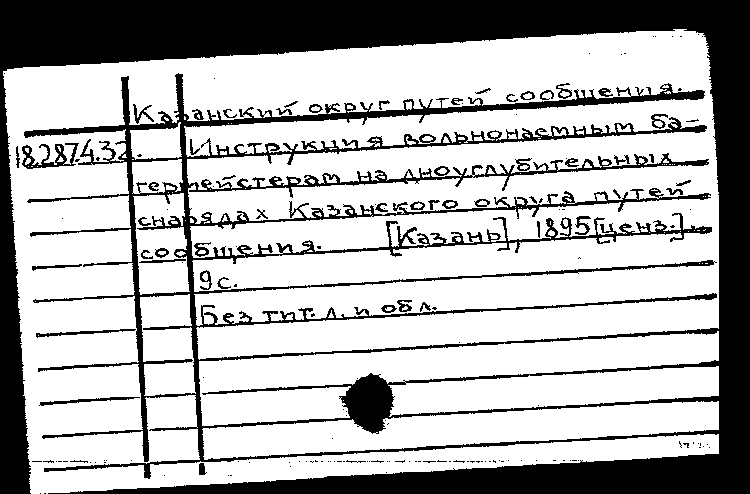 Казанский округ путей сообщения.
18.2874.32. Инструкция вольнонаемным ба-
гермейстерам на дноуглубительных
снарядах Казанского округа путей
сообщения. [Казань], 1895 [ценз.].
9с.
Без тит. л. и обл.